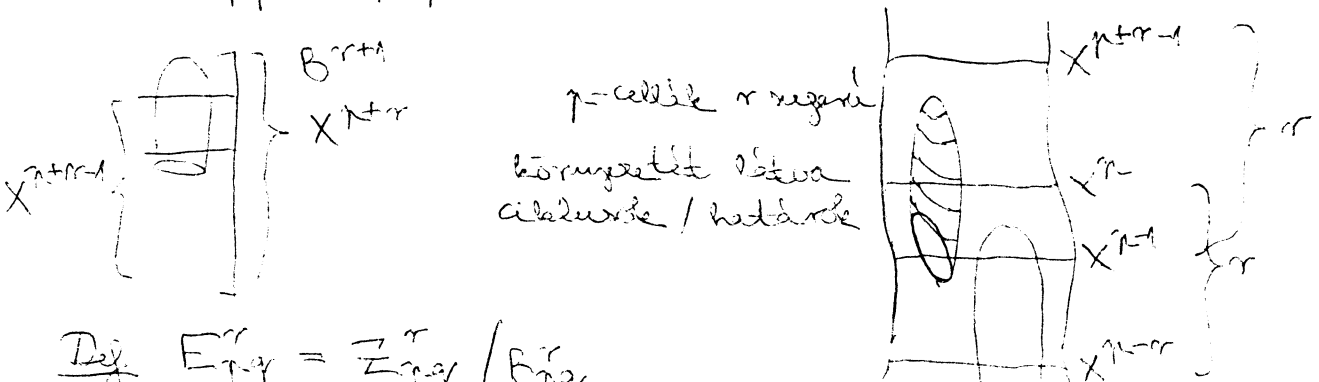 B^{r+1}
X^{p+r}
X^{p+r-1}
p-cellák r sugarú
környezetét látva
ciklusok / határok
X^{p+r-1}
r
X^p
X^{p-1}
r
X^{p-r}
Def. E^r_{pq} = Z^r_{pq} / B^r_{pq}